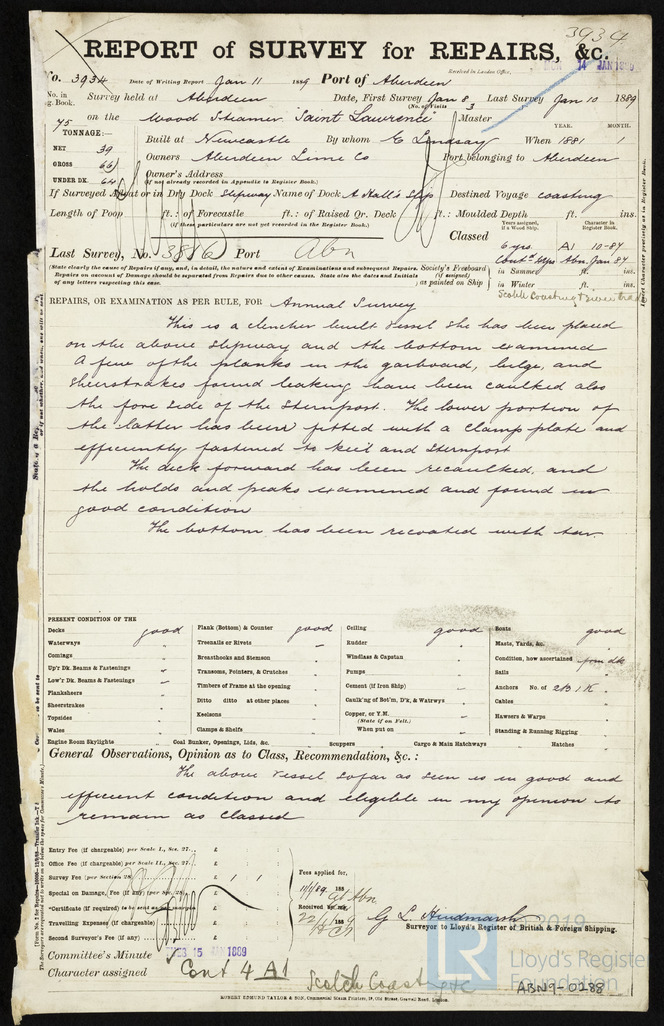 3934
REPORT of SURVEY for REPAIRS, &c.
Received in London Office, MON 14 JAN 1889
No. 3934 Date of Writing Report Jan 11 1889 Port of Aberdeen
No. in Survey held at Aberdeen Date, First Survey Jan 8 Last Survey Jan 10 1889
g. Book. (No. of Visits 3)
75 on the Wood Steamer "Saint Lawrence" Master
TONNAGE:— YEAR. MONTH.
NET 39 Built at Newcastle By whom C Lindsay When 1881 1
GROSS 66 Owners Aberdeen Lime Co Port belonging to Aberdeen
UNDER DK 64 Owner's Address
(If not already recorded in Appendix to Register Book.)
If Surveyed Afloat or in Dry Dock Slipway Name of Dock A Hall's Slip Destined Voyage coasting
Length of Poop ft.: of Forecastle ft.: of Raised Qr. Deck ft.: Moulded Depth ft. ins.
(If these particulars are not yet recorded in the Register Book.)
Years assigned, if a Wood Ship. Character in Register Book.
Classed 6 yrs A1 10-87
Last Survey, No. 3816 Port Abn Contd 4yrs Abn. Jan 87
(State clearly the cause of Repairs if any, and, in detail, the nature and extent of Examinations and subsequent Repairs. Society's Freeboard in Summer ft. ins.
Repairs on account of Damage should be separated from Repairs due to other causes. State also the dates and Initials (if assigned)
of any letters respecting this case. as painted on Ship in Winter ft. ins.
Scotch Coasting & River trade
REPAIRS, OR EXAMINATION AS PER RULE, FOR Annual Survey
This is a clencher built vessel she has been placed
on the above slipway and the bottom examined
A few of the planks in the garboard, bilge, and
sheerstrakes found leaking have been caulked also
the fore side of the sternpost. The lower portion of
the latter has been fitted with a clamp plate and
efficiently fastened to keel and sternpost
The deck forward has been recaulked, and
the holds and peaks examined and found in
good condition
The bottom has been recoated with tar
PRESENT CONDITION OF THE
Decks good Plank (Bottom) & Counter good Ceiling good Boats good
Waterways " Treenails or Rivets " Rudder " Masts, Yards, &c. "
Comings " Breasthooks and Stemson " Windlass & Capstan " Condition, how ascertained from dk
Up'r Dk. Beams & Fastenings " Transoms, Pointers, & Crutches " Pumps " Sails "
Low'r Dk. Beams & Fastenings Timbers of Frame at the opening Cement (if Iron Ship) Anchors No. of 2B. 1 K.
Planksheers " Ditto ditto at other places " Caulk'g of Bot'm, D'k, & Watrwys " Cables "
Sheerstrakes " Keelsons " Copper, or Y.M. Hawsers & Warps "
Topsides " Clamps & Shelfs " (State if on Felt.) Standing & Running Rigging "
Wales " When put on
Engine Room Skylights " Coal Bunker, Openings, Lids, &c. " Scuppers " Cargo & Main Hatchways " Hatches "
General Observations, Opinion as to Class, Recommendation, &c.:
The above vessel so far as seen is in good and
efficient condition and eligible in my opinion to
remain as classed
Entry Fee (if chargeable) per Scale I., Sec. 27... £ : :
Office Fee (if chargeable) per Scale II., Sec. 27... £ : :
Survey Fee (per Section 28) £ 1 : 1 : Fees applied for,
Special on Damage, Fee (if any) (per Sec. 28) £ : : 11/1/89 188
Certificate (if required) to be sent as per margin £ : : Received by me,
Travelling Expenses (if chargeable) £ : : 188 G L Hindmarsh
Second Surveyor's Fee (if any) £ : : Surveyor to Lloyd's Register of British & Foreign Shipping.
Committee's Minute TUES 15 JAN 1889
Character assigned Cont 4 A1
Scotch Coasting &c
2019
LR
Lloyd's Register
Foundation
ABN9-0288
ROBERT EDMUND TAYLOR & SON, Commercial Steam Printers, 19, Old Street, Goswell Road, London.